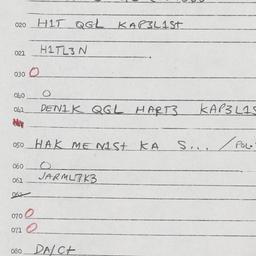 020 H1T QGL KAP3L1St
021 H1TL3N
030 O
040 O
041 DEN1K QGL HART3 KAP3L1S
050 HAK ME N1St KA S... /POL
060 O
061 JARML7K3
070 O
071 O
080 DA/Ct